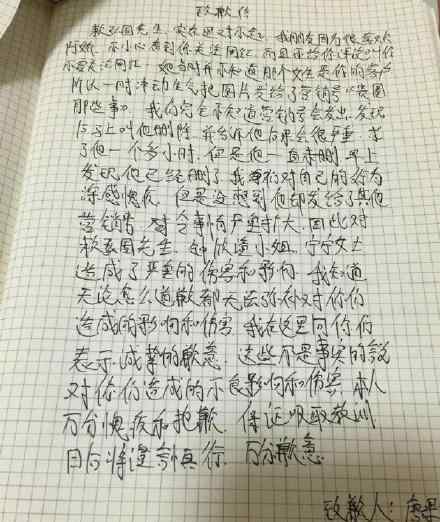 致歉信
先生，实在很对不起，我朋友因为
不小心看到你关注网红，而且不给你评论叫你
不要关注网红，她当时并不知道那个女生是你的客户
所以一时冲动生气把图片发给了营销号《贵圈
那些事》，我们完全不知道营销号会发出，发现
后马上叫他删除，并告诉他后果会很严重，求
了他一个多小时，但是他一直未删，早上
发现他已经删了，我们对自己的行为
深感愧疚，但是没想到他却发给了其他
营销号，对令事情严重扩大，因此对
先生，小姐，宁宁女士
造成了严重的伤害和影响，我知道
无论怎么道歉都无法弥补对你们
造成的影响和伤害，我在这里向你们
表示诚挚的歉意，这些不是事实的说
对你们造成的不良影响和伤害，本人
万分愧疚和抱歉，保证吸取教训
日后将谨言慎行，万分歉意.
致歉人：